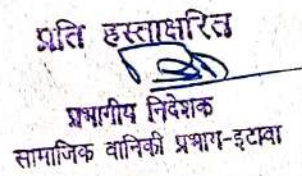 प्रति हस्ताक्षरित
प्रभागीय निदेशक
सामाजिक वानिकी प्रभाग-इटावा